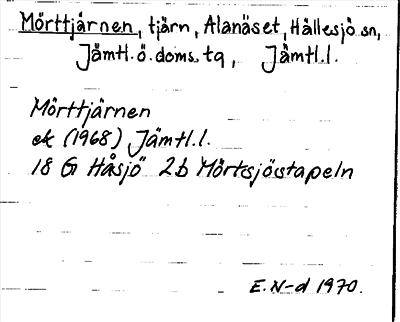 Mörttjärnen, tjärn, Alanäset, Hällesjö sn,
Jämtl.ö.doms.tg, Jämtl.l.
Mörttjärnen
ek (1968) Jämtl.l.
18 G Håsjö 2b Mörtsjöstapeln
E.N-d 1970.